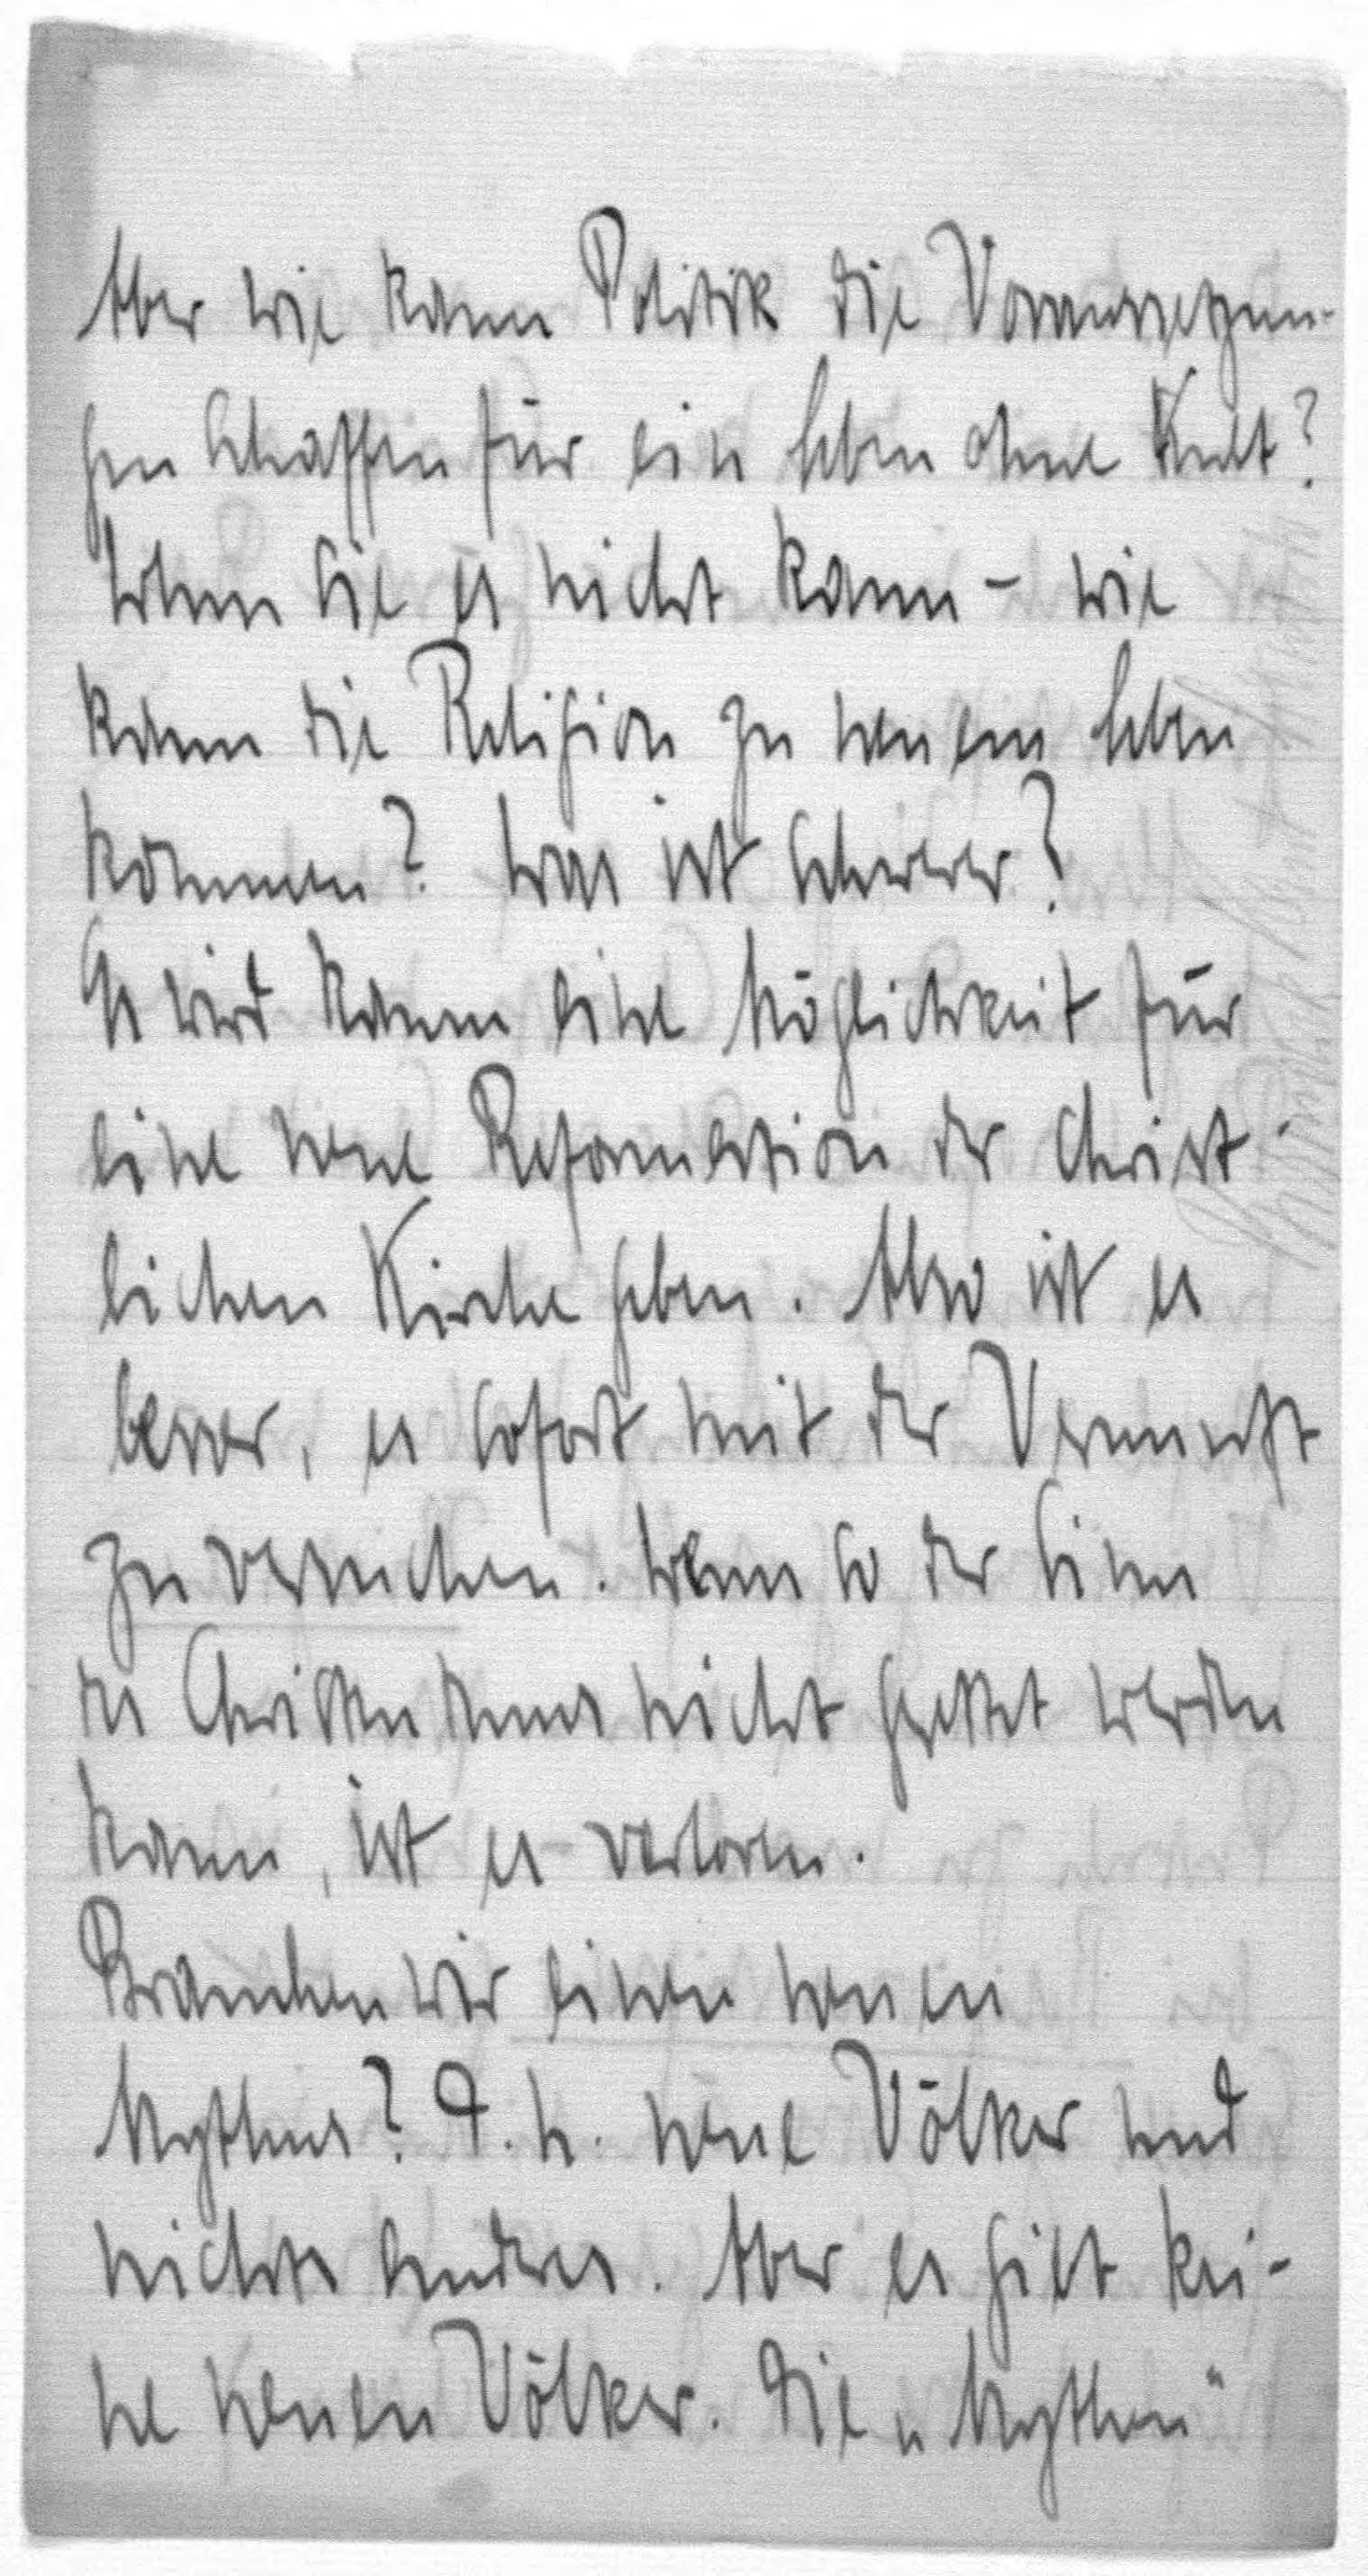 Aber wie kann Politik die Voraussetzun-
gen schaffen für ein Leben ohne Kult?
Wenn sie es nicht kann – wie
kann die Religion zu neuem Leben
kommen? Was ist schwerer?
Es wird kaum eine Möglichkeit für
eine neue Reformation der christ-
lichen Kirche geben. Also ist es
besser, es sofort mit der Vernunft
zu versuchen. Wenn so der Sinn
des Christentums nicht gerettet werden
kann, ist er verloren.
Brauchen wir einen neuen
Mythus? D.h. neue Völker und
nichts Anderes. Aber es gibt kei-
ne neuen Völker. Die „Mythen"